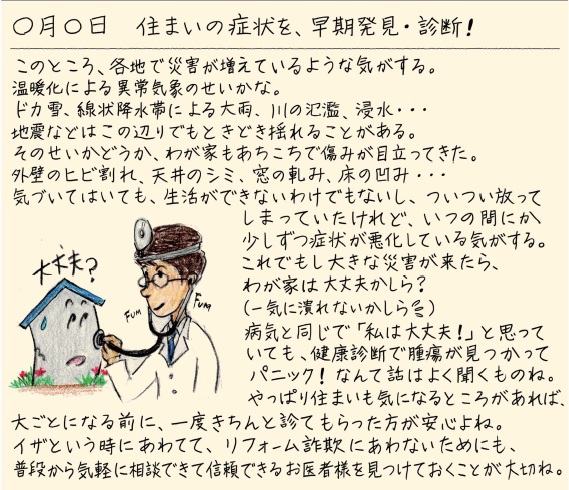 〇月〇日 住まいの症状を、早期発見・診断！
このところ、各地で災害が増えているような気がする。
温暖化による異常気象のせいかな。
ドカ雪、線状降水帯による大雨、川の氾濫、浸水・・・
地震などはこの辺りでもときどき揺れることがある。
そのせいかどうか、わが家もあちこちで傷みが目立ってきた。
外壁のヒビ割れ、天井のシミ、窓の軋み、床の凹み・・・
気づいてはいても、生活ができないわけでもないし、ついつい放って
しまっていたけれど、いつの間にか
少しずつ症状が悪化している気がする。
これでもし大きな災害が来たら、
わが家は大丈夫かしら？
(一気に潰れないかしら)
病気と同じで「私は大丈夫！」と思って
いても、健康診断で腫瘍が見つかって
パニック！なんて話はよく聞くものね。
やっぱり住まいも気になるところがあれば、
大ごとになる前に、一度きちんと診てもらった方が安心よね。
イザという時にあわてて、リフォーム詐欺にあわないためにも、
普段から気軽に相談できて信頼できるお医者様を見つけておくことが大切ね。
大丈夫？
FUM
FUM